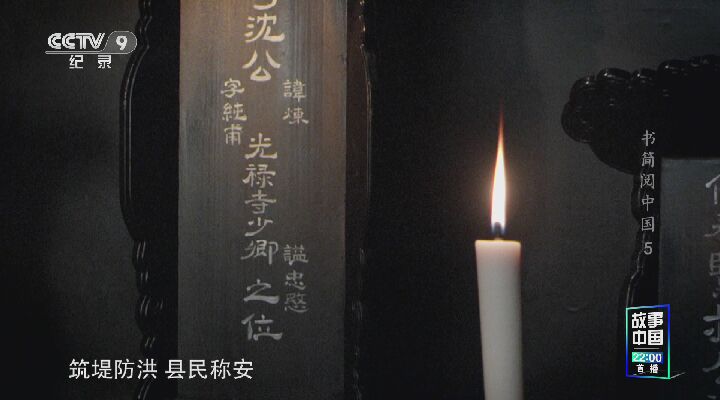 CCTV 9
纪录
沈公
諱煉
字純甫
光禄寺少卿之位
謚忠愍
书简阅中国 5
故事
中国
22:00
首播
筑堤防洪 县民称安